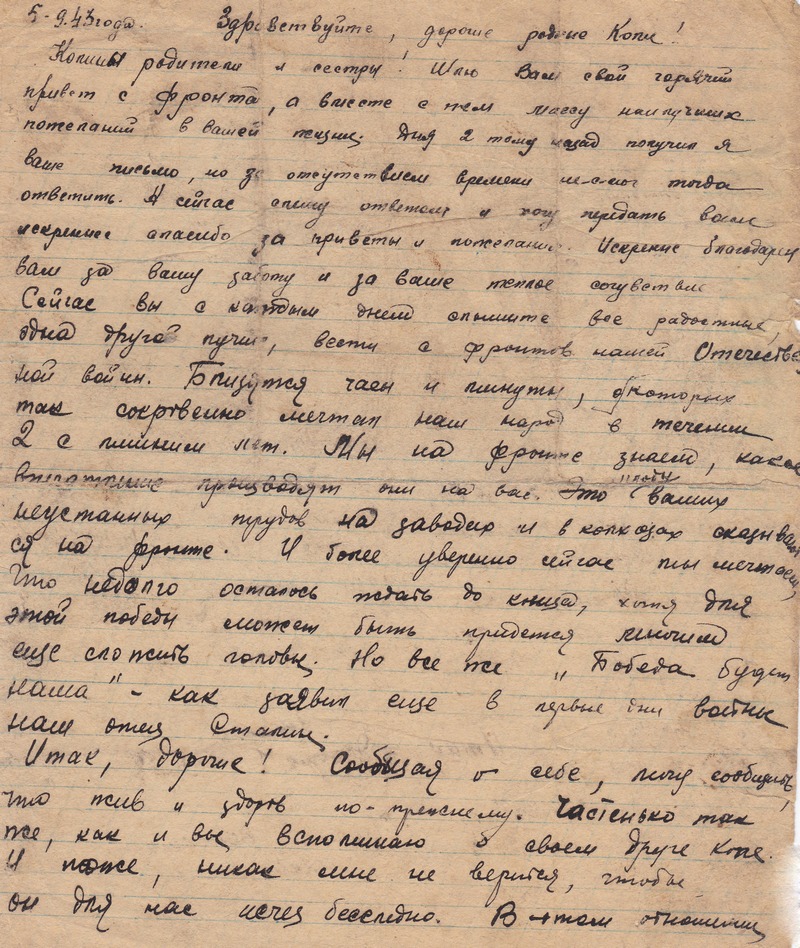 5-9.43 года. Здравствуйте, дорогие родные Коли!
Колины родители и сестры! Шлю Вам свой горячий
привет с фронта, а вместе с тем массу наилучших
пожеланий в вашей жизни. Дня 2 тому назад получил я
ваше письмо, но за отсутствием времени не смог тогда
ответить. А сейчас спешу ответом и хочу передать вам
искренне спасибо за приветы и пожелания. Искренне благодарен
вам за вашу заботу и за ваше теплое сочувствие
Сейчас вы с каждым днем слышите все радостные,
одна другой лучше, вести с фронтов нашей Отечествен
ной войны. Близятся часы и минуты, о которых
так сокровенно мечтал наш народ в течении
2 с лишним лет. Мы на фронте знаем, какое
впечатление производят они на вас. Это плоды ваших
неустанных трудов на заводах и в колхозах сказывают
ся на фронте. И более уверенно сейчас мы мечтаем,
что недолго осталось ждать до конца, хотя для
этой победы может быть придется многим
еще сложить головы. Но все же „Победа будет
наша" - как заявил еще в первые дни войны
наш отец Сталин.
Итак, дорогие! Сообщая о себе, могу сообщить,
что жив и здоров по-прежнему. Частенько так
же, как и вы вспоминаю о своем друге Коле.
И тоже, никак мне не верится, чтобы
он для нас исчез бесследно. В этом отношении